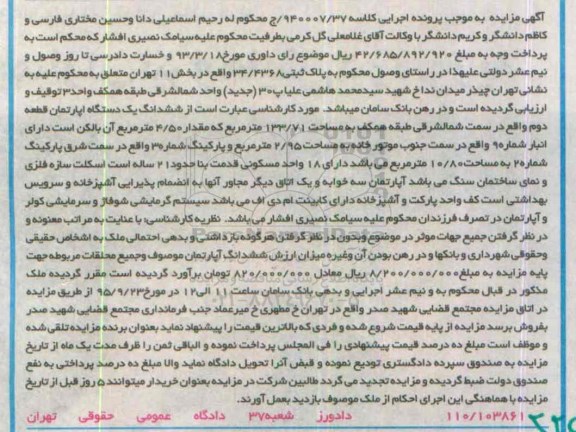 آگهی مزایده به موجب پرونده اجرایی کلاسه ۹۴۰۰۰۷/۳۷/ج محکوم له رحیم اسماعیلی دانا وحسین مختاری فارسی و
کاظم دانشگر و کریم دانشگر با وکالت آقای غلامعلی گل کرمی بطرفیت محکوم علیه سیامک نصیری افشار که محکم است به
پرداخت وجه به مبلغ ۴۲/۶۸۵/۸۹۲/۹۲۰ ریال موضوع رای داوری مورخ۹۳/۳/۱۸ و خسارت دادرسی تا روز وصول و
نیم عشر دولتی علیهذا در راستای وصول محکوم به پلاک ثبتی۳۴/۴۳۶۸ واقع در بخش۱۱ تهران متعلق به محکوم علیه به
نشانی تهران چیذر میدان نداخ شهید سیدمحمد هاشمی علیاپ۳۰ (جدید) واحد شمالشرقی طبقه همکف واحد۳ توقیف و
ارزیابی گردیده است و در رهن بانک سامان میباشد. مورد کارشناسی عبارت است از ششدانگ یک دستگاه آپارتمان قطعه
دوم واقع در سمت شمالشرقی طبقه همکف به مساحت ۱۳۳/۷۱ مترمربع که مقدار ۴/۵۰ مترمربع آن بالکن است دارای
انبار شماره۹ واقع در سمت جنوب موتور خانه به مساحت ۲/۹۵ مترمربع و پارکینگ شماره۳ واقع در سمت شرق پارکینگ
شماره۲ به مساحت۱۰/۸۰ مترمربع می باشد دارای ۱۸ واحد مسکونی قدمت بنا حدود۲۱ ساله است اسکلت سازه فلزی
و نمای ساختمان سنگ می باشد آپارتمان سه خوابه و یک اتاق دیگر مجاور آنها به انضمام پذیرایی آشپزخانه و سرویس
بهداشتی است کف واحد پارکت و آشپزخانه دارای کابینت ام دی اف می باشد سیستم گرمایشی شوفاژ و سرمایشی کولر
و آپارتمان در تصرف فرزندان محکوم علیه سیامک نصیری افشار می باشد. نظریه کارشناسی: با عنایت به مراتب معنونه و
در نظر گرفتن جمیع جهات موثر در موضوع وبدون در نظر گرفتن هرگونه بازداشتی و بدهی احتمالی ملک به اشخاص حقیقی
وحقوقی شهرداری و بانکها و در رهن بودن آن وغیره میزان ارزش ششدانگ آپارتمان موصوف وجمیع محلقات مربوطه جهت
پایه مزایده به مبلغ ۸/۲۰۰/۰۰۰/۰۰۰ ریال معادل ۸۲۰/۰۰۰/۰۰۰ تومان برآورد گردیده است مقرر گردیده ملک
مذکور در قبال محکوم به و نیم عشر اجرایی و بدهی بانک سامان ساعت ۱۱ الی۱۲ در مورخ۹۵/۹/۲۳ از طریق مزایده
در اتاق مزایده مجتمع قضایی شهید صدر واقع در تهران خ مطهری خ میرعماد جنب فرمانداری مجتمع قضایی شهید صدر
بفروش برسد مزایده از پایه قیمت شروع شده و فردی که بالاترین قیمت را پیشنهاد نماید بعنوان برنده مزایده تلقی شده
و موظف است مبلغ ده درصد قیمت پیشنهادی را فی المجلس پرداخت نموده و الباقی ثمن را ظرف مدت یک ماه از تاریخ
مزایده به صندوق سپرده دادگستری تودیع نموده و قبض آنرا تحویل دادگاه نماید والا مبلغ ده درصد پرداختی به نفع
صندوق دولت ضبط گردیده و مزایده تجدید می گردد طالبین شرکت در مزایده بعنوان خریدار میتوانند۵ روز قبل از تاریخ
مزایده با هماهنگی این اجرای احکام از ملک موصوف بازدید بعمل آورند.
۱۱۰/۱۰۳۸۶۱ دادورز شعبه۳۷ دادگاه عمومی حقوقی تهران